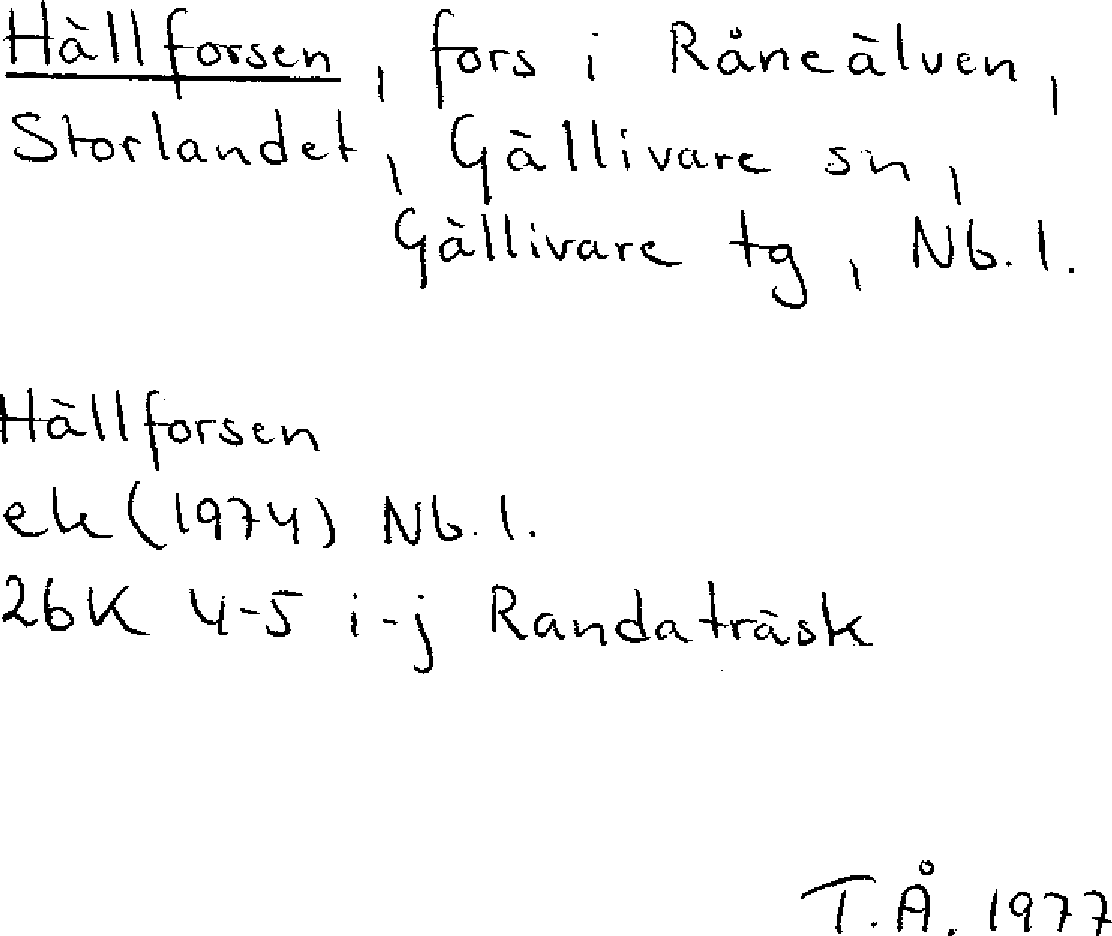 Hällforsen, fors i Råneälven,
Storlandet, Gällivare sn,
Gällivare tg, Nb. l.
Hällforsen
ek (1974) Nb. l.
26K 4-5 i-j Randaträsk
T.Å. 1977